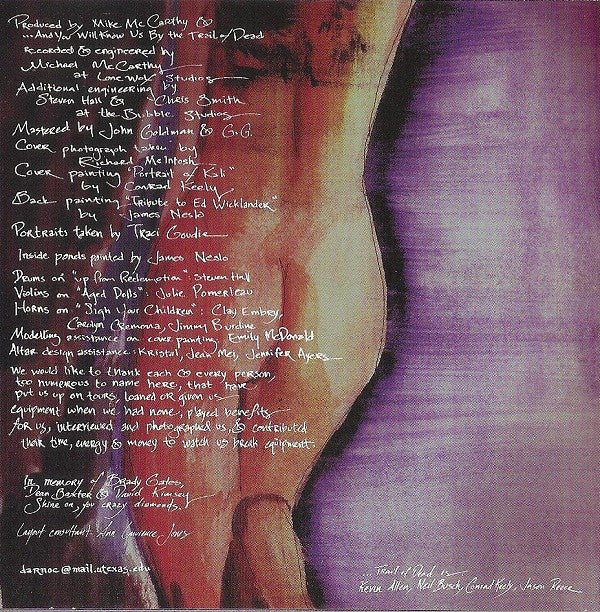 Produced by Mike McCarthy &
...And You Will Know Us By the Trail of Dead
recorded & engineered by
Michael McCarthy
at Lone Wolf Studios
Additional engineering by
Steven Hall & Chris Smith
at the Bubble Studios
Mastered by John Goldman & G.G.
Cover photograph taken by
Richard McIntosh
Cover painting "Portrait of Kali"
by Conrad Keely
Back painting "Tribute to Ed Wicklander"
by James Neslo
Portraits taken by Traci Goudie
Inside panels painted by James Neslo
Drums on "up from Redemption": Steven Hall
Violins on "Aged Dolls": Julie Pomerleau
Horns on "Sigh Your Children": Clay Embry,
Carolyn Cremona, Jimmy Burdine
Modelling assistance on cover painting, Emily McDonald
Altar design assistance: Kristal, Jean Mei, Jennifer Ayers
We would like to thank each & every person,
too numerous to name here, that have
put us up on tours, loaned or given us
equipment when we had none, played benefits
for us, interviewed and photographed us, & contributed
their time, energy & money to watch us break equipment.
In memory of Brady Gates,
Dean Baxter & David Kimsey
Shine on, you crazy diamonds.
Layout consultant: Ann Lawrence Jones
darnoc@mail.utexas.edu
...Trail of Dead is
Kevin Allen, Neil Busch, Conrad Keely, Jason Reece